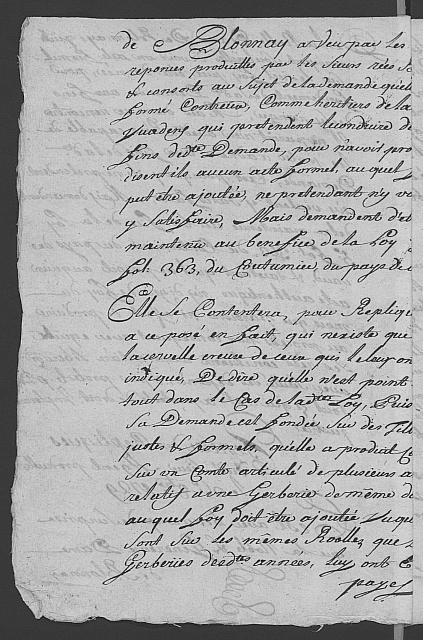 de Blonnay a veu par les
reponces produittes par les sieurs rées
& consorts au Sujet de la demande qu'elle
formé Contr'eux, Comme heritiers de la
Vuadens qui pretendent l'econduire de
fins de dte Demande, pour n'avoir pro
disent ils aucun acte formel, au quel
put être ajoutée, ne pretendant n'y vo
y Satisfaire, Mais demandent d'et
maintenu au benefice de la Loy
fol: 363, du Coutumier du pays de
Elle Se Contentera, pour Replique
a ce posé en fait, qui n'existe que
la cervelle creuse de ceux qui le leur on
indiqué, De dire qu'elle n'est point
tout dans le Cas de la dtes Loy, Puis
Sa Demande est fondée Sur des Tit
justes & formels, qu'elle a produit
Sur un Comte articulé de plusieurs a
relatif a une Gerberie de même
au quel foy doit être ajoutée Vuque
Sont Sur les mêmes Roolle, que
Gerberies desdtes années, luy ont
paye